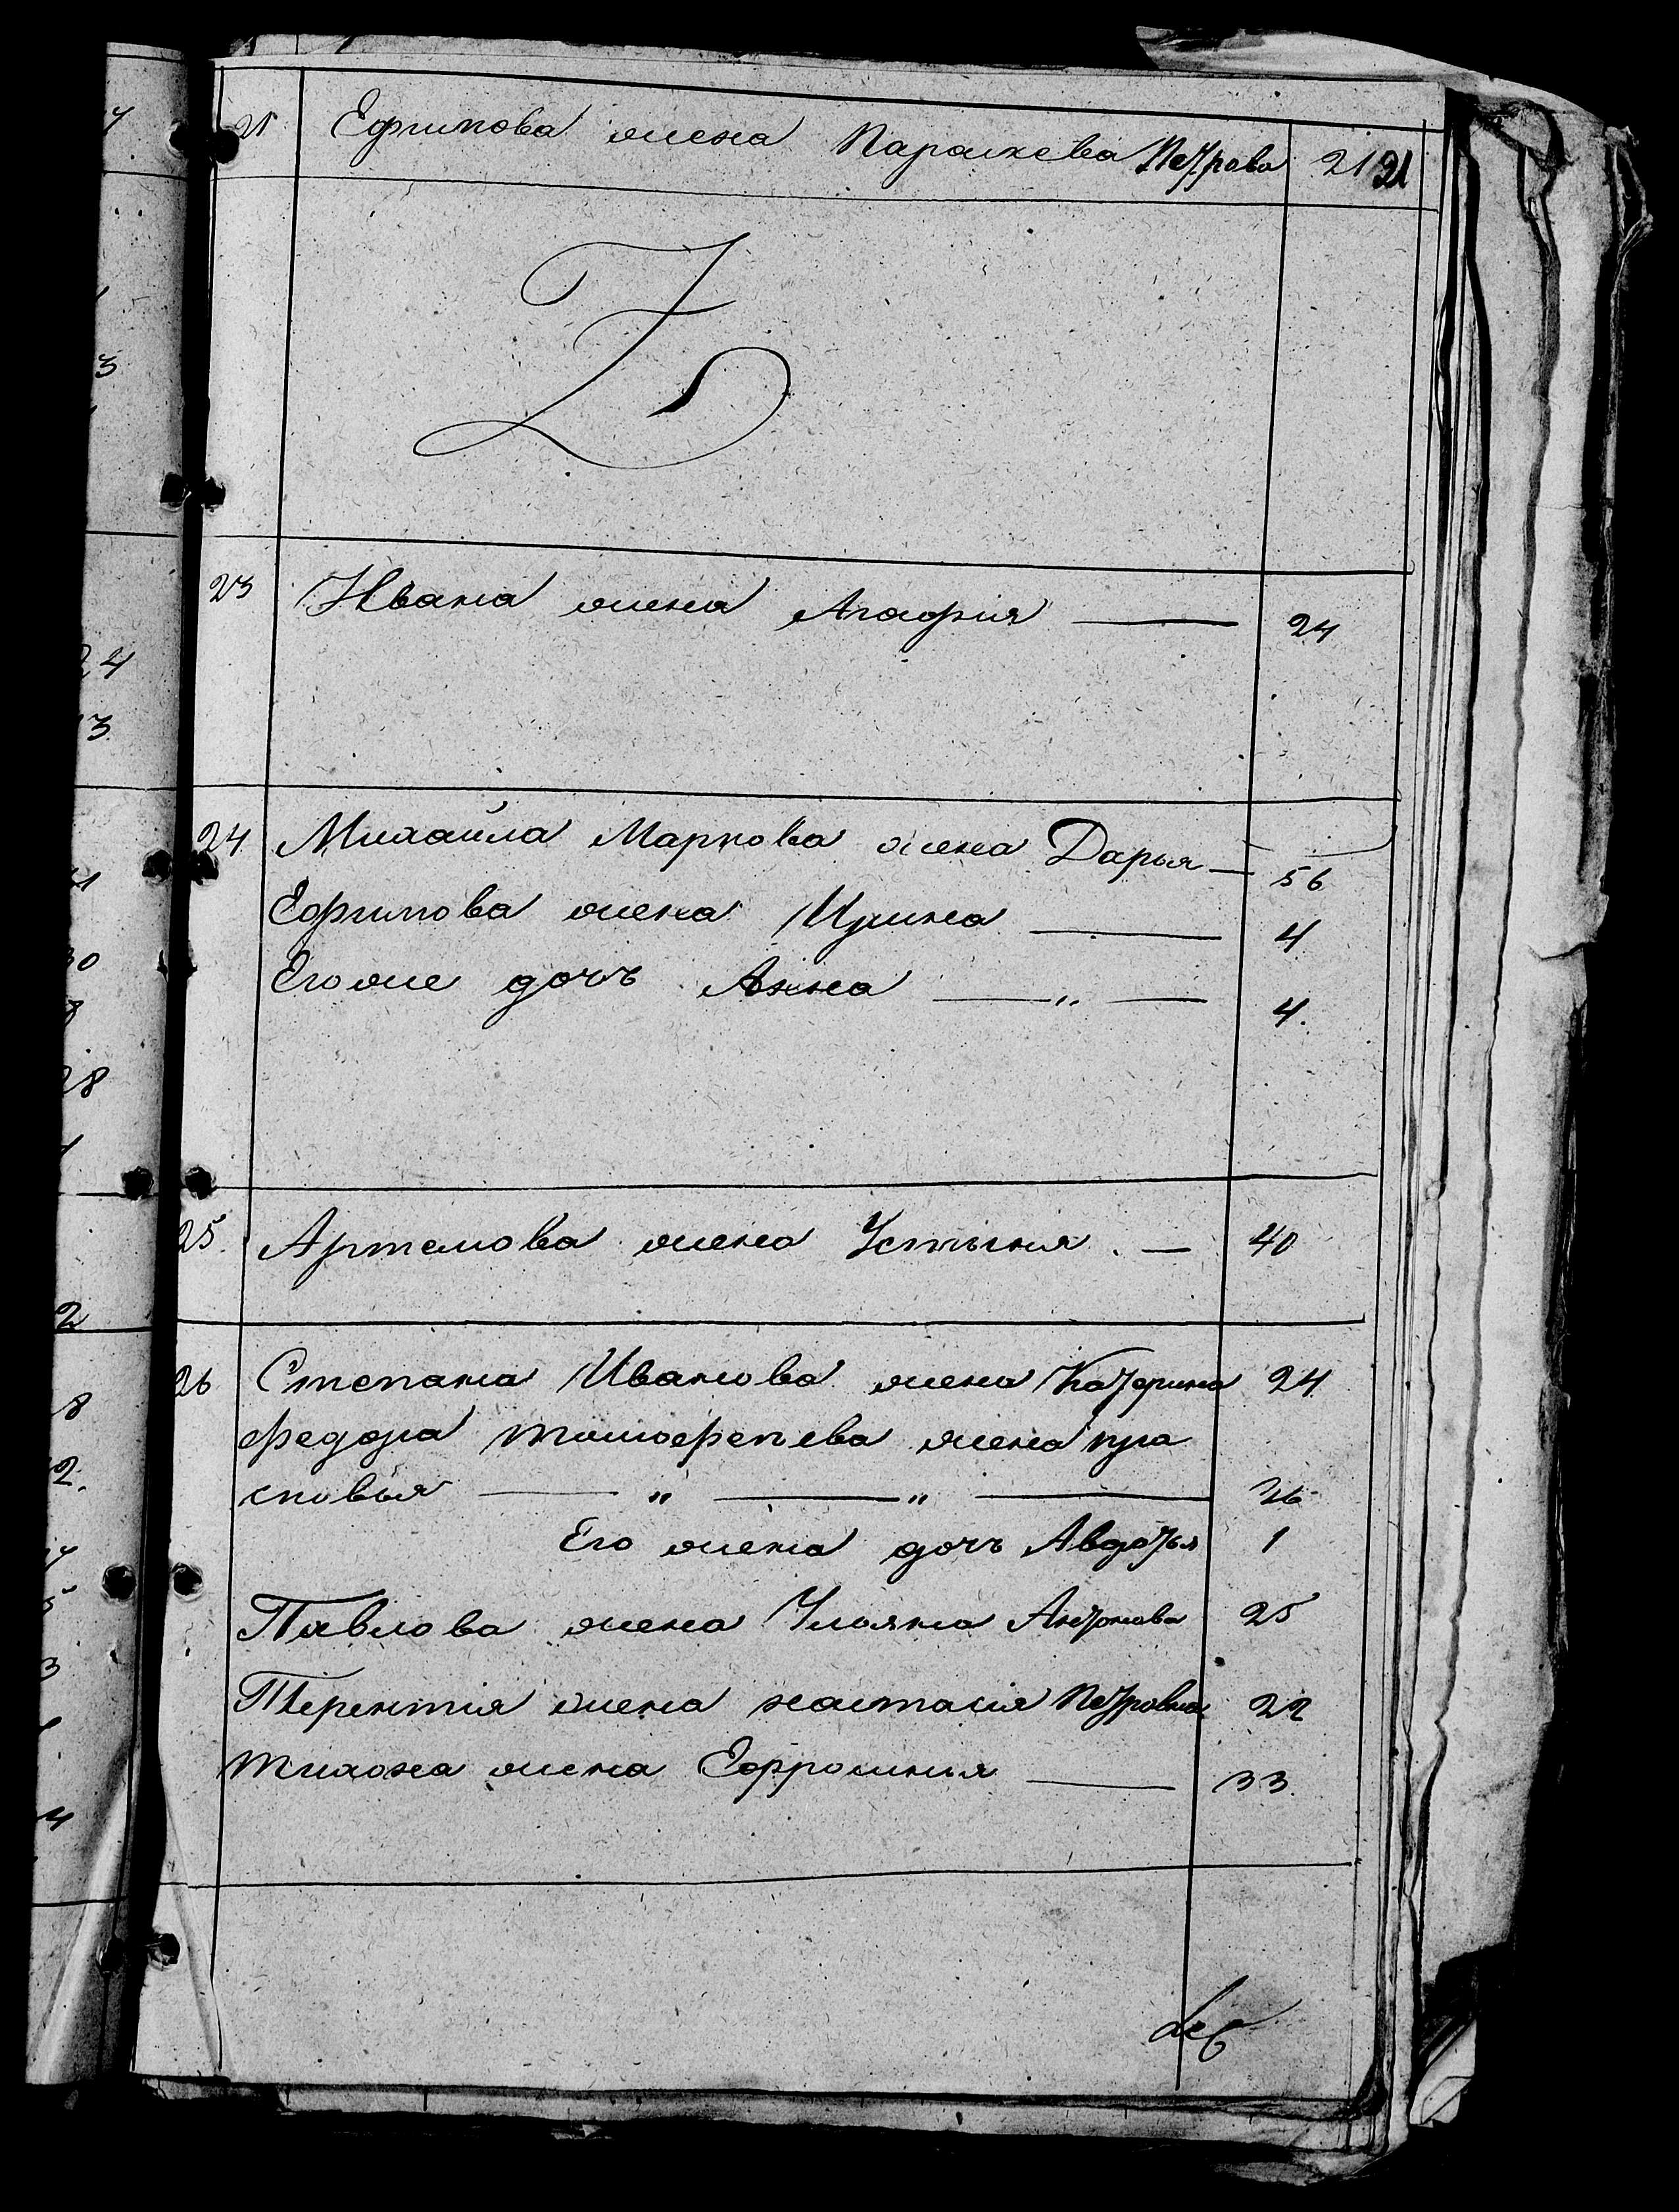 21 Ефимова жена Параскева Петрова 21 21
23 Ивана жена Агафия 24
24 Михайла Маркова жена Дарья — 56
Ефимова жена Ирина 4
Егоже дочь Анна — " — 4.
25. Артемова жена Устиния. — 40
26 Степана Иванова жена Катерина 24
федора тимофеева жена пра
сковья — " — " — 36
Его жена дочь Авдотья 1
Павлова жена Ульяна Антонова 25
Терентия жена настасия Петровна 22
тихона жена Ефросинья — 33.